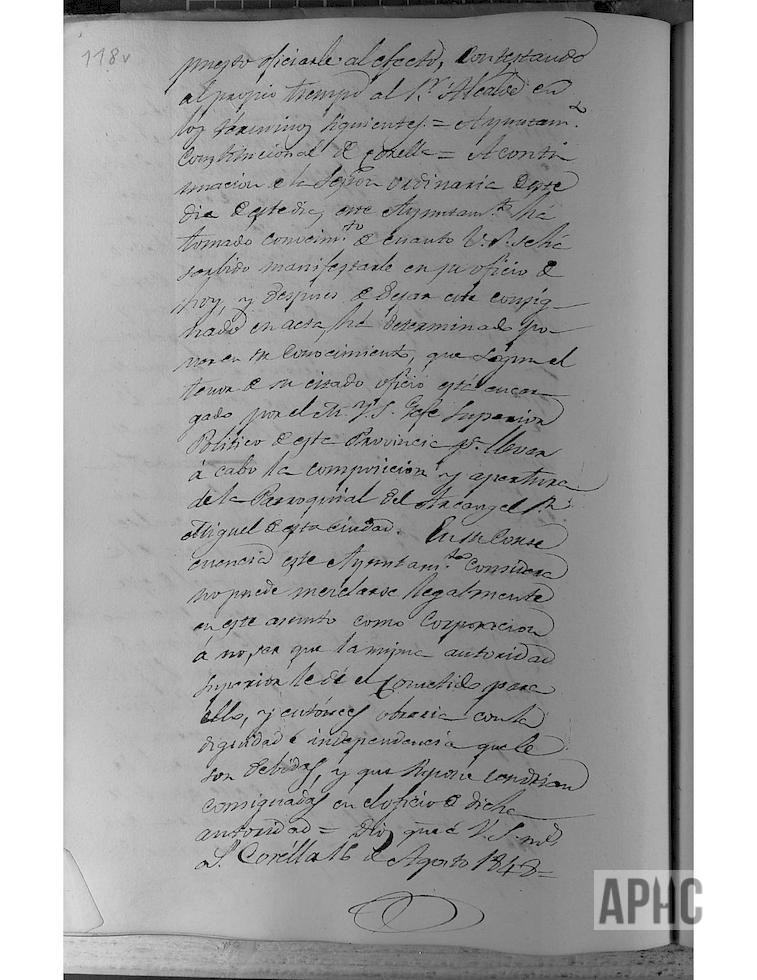 118v
puesto oficiarle al efecto, Contestando
al propio tiempo al Sr. Alcalde en
los términos siguientes = Ayuntam.to
Constitucional de Corella = A conti
nuacion de la Sesion ordinaria de este
dia este Ayuntam.to há
tomado conocim.to de cuanto V.S. se há
servido manifestarle en su oficio de
hoy, y despues de dejar este consig-
nado en acta, há determinado po-
ner en su Conocimiento, que segun el
tenor de su citado oficio está encar
gado por el M. Y. S. Gefe Superior
Politico de esta Provincia pª. llevar
á cabo la composicion y apertura
de la Parroquial del Arcangel Sn.
Miguel de esta ciudad. En su Conse
cuencia este Ayuntam.to considera
no puede mezclarse legalmente
en este asunto como Corporacion
á no ser que la misma autoridad
Superior le dé el Cometido para
ello, y entónces obraria con la
dignidad é independencia que le
son debidas, y que supone vendrian
consignadas en el oficio de dicha
autoridad = Dios gue. á V.S. ms.
as. Corella 16 de Agosto 1848 =
APHC